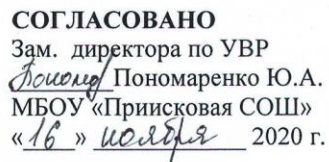 СОГЛАСОВАНО
Зам. директора по УВР
Пономаренко Ю.А.
МБОУ «Приисковая СОШ»
«16» ноября 2020 г.